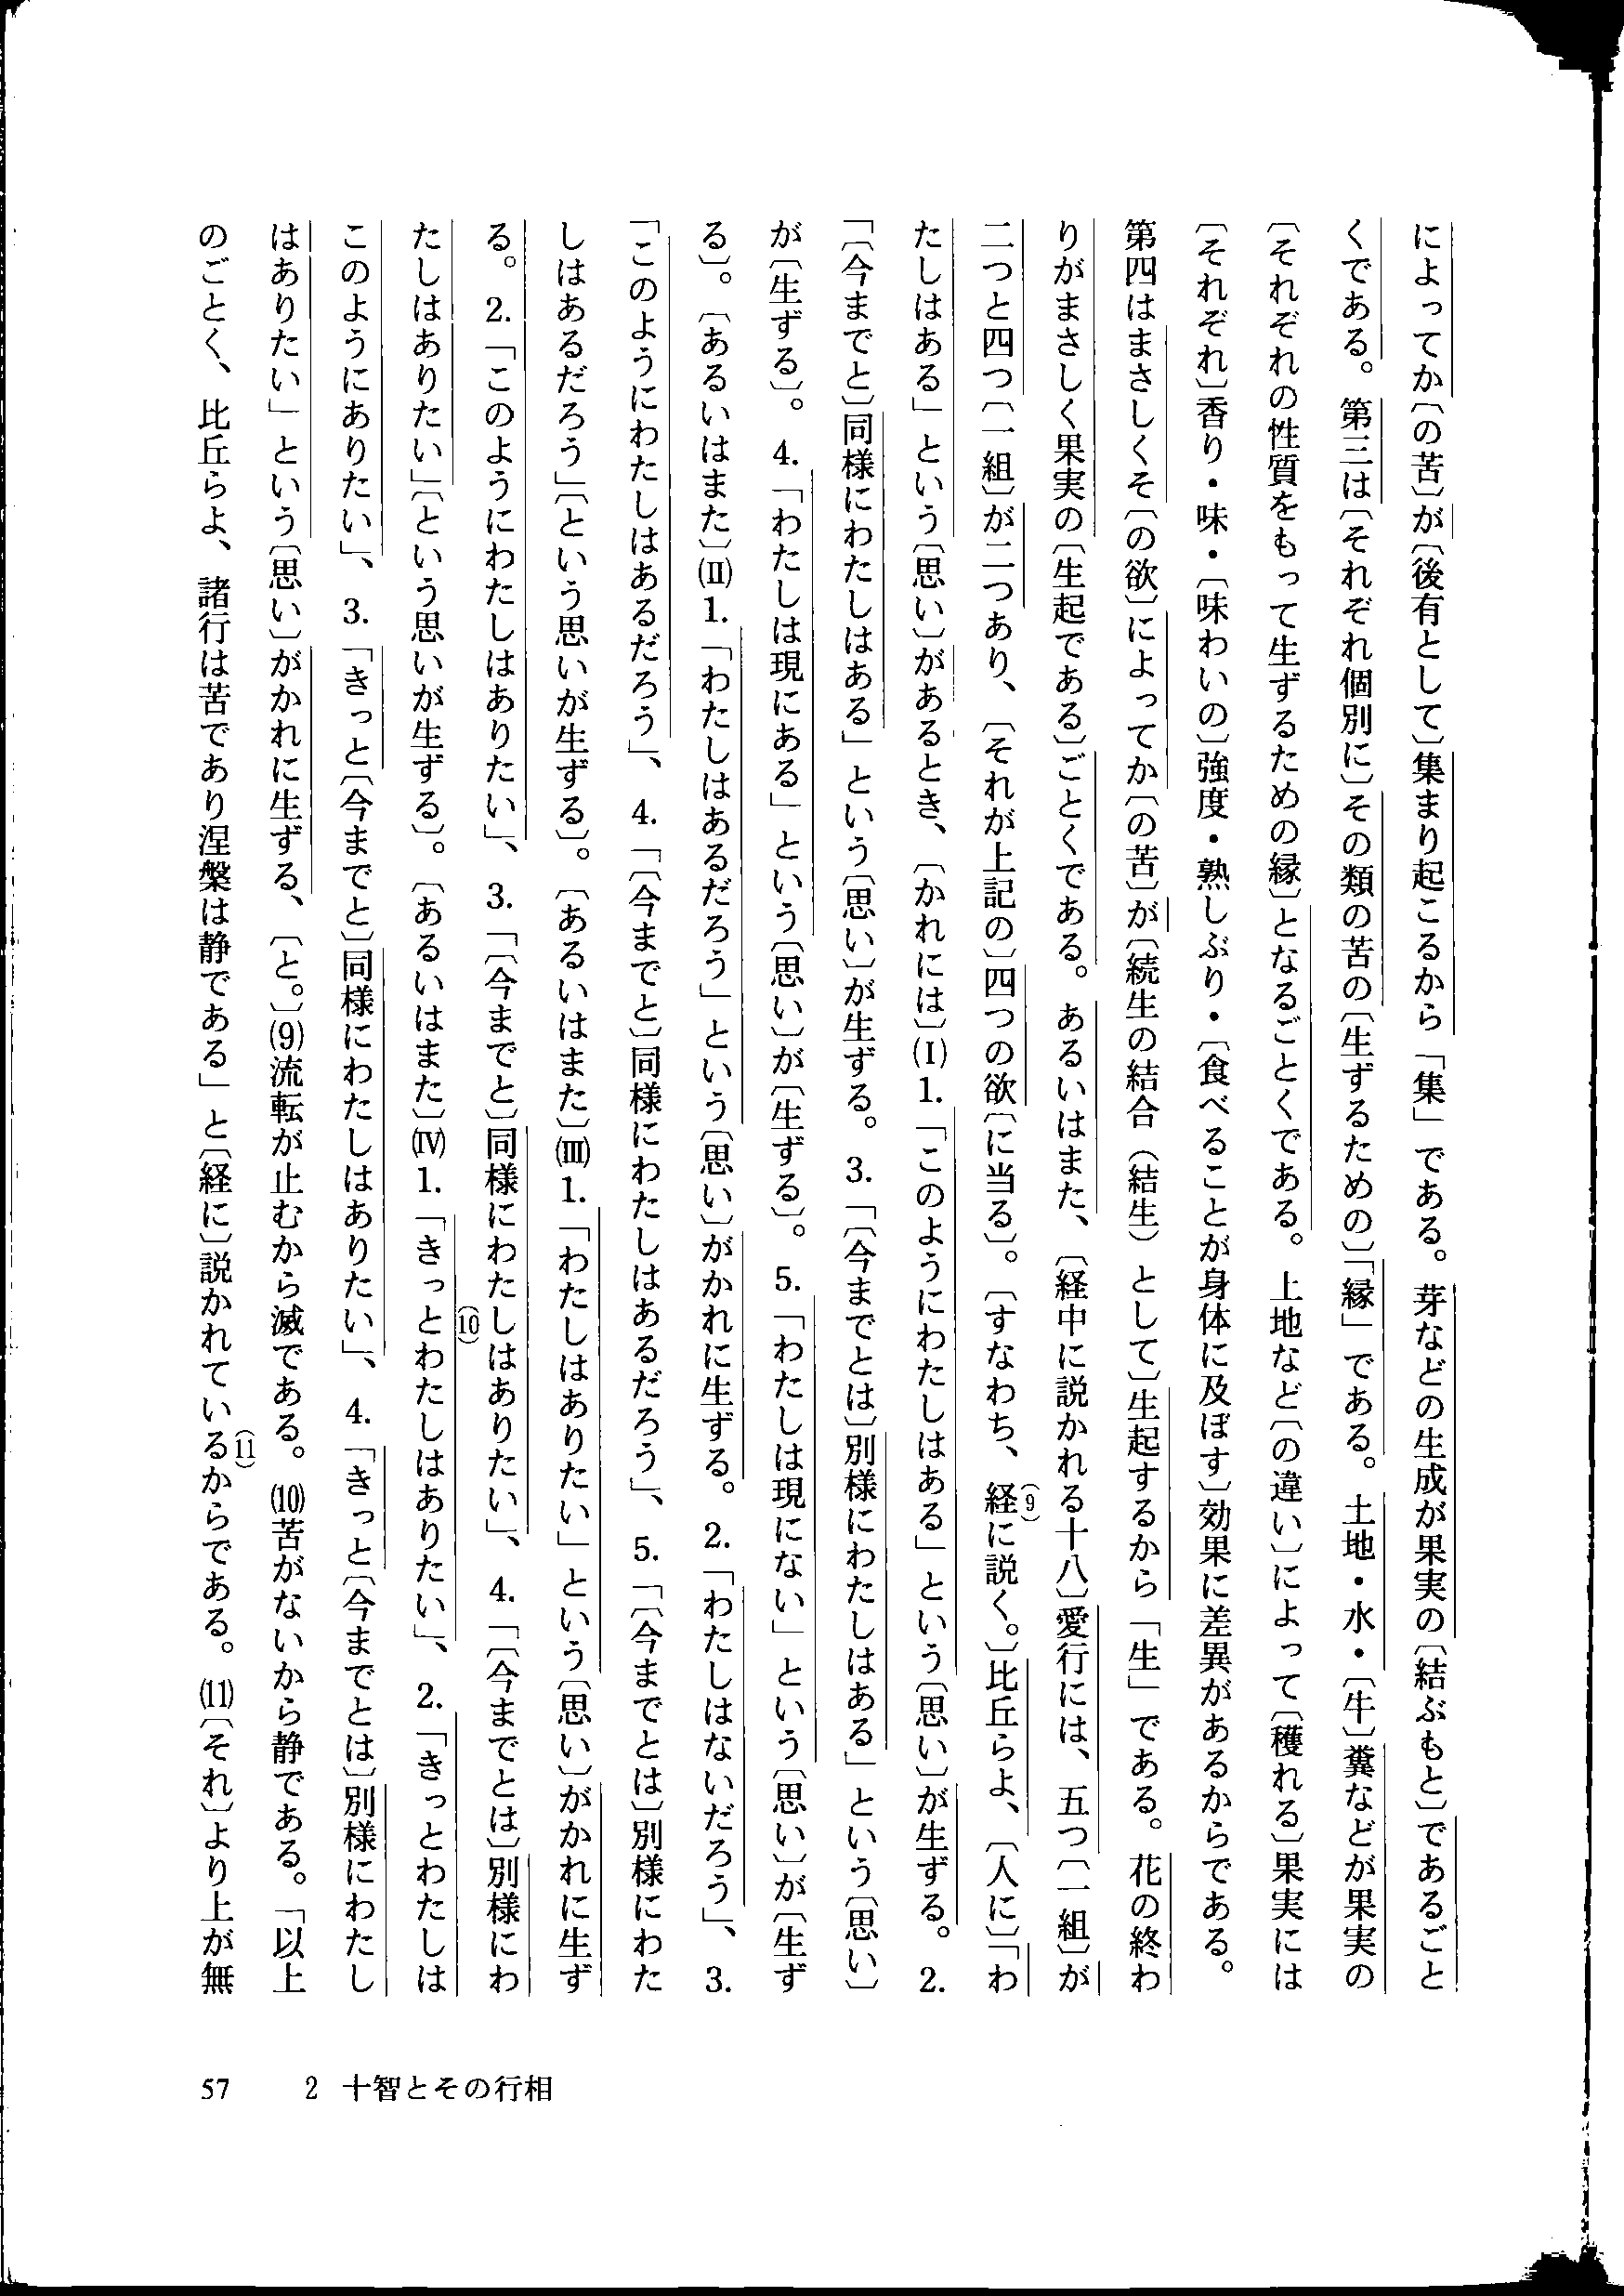 によってか〔の苦〕が〔後有として〕集まり起こるから「集」である。芽などの生成が果実の〔結ぶもと〕であるごと
くである。第三は〔それぞれ個別に〕その類の苦の〔生ずるための〕「縁」である。土地・水・〔牛〕糞などが果実の
〔それぞれの性質をもって生ずるための縁〕となるごとくである。上地など〔の違い〕によって〔穫れる〕果実には
〔それぞれ〕香り・味・〔味わいの〕強度・熟しぶり・〔食べることが身体に及ぼす〕効果に差異があるからである。
第四はまさしくそ〔の欲〕によってか〔の苦〕が〔続生の結合（結生）として〕生起するから「生」である。花の終わ
りがまさしく果実の〔生起である〕ごとくである。あるいはまた、〔経中に説かれる十八〕愛行には、五つ〔一組〕が
二つと四つ〔一組〕が二つあり、〔それが上記の〕四つの欲〔に当る〕。〔すなわち、経(9)に説く。〕比丘らよ、〔人に〕「わ
たしはある」という〔思い〕があるとき、〔かれには〕(I)1.「このようにわたしはある」という〔思い〕が生ずる。2.
「〔今までと〕同様にわたしはある」という〔思い〕が生ずる。3.「〔今までとは〕別様にわたしはある」という〔思い〕
が〔生ずる〕。4.「わたしは現にある」という〔思い〕が〔生ずる〕。5.「わたしは現にない」という〔思い〕が〔生ず
る〕。〔あるいはまた〕(II)1.「わたしはあるだろう」という〔思い〕がかれに生ずる。2.「わたしはないだろう」、3.
「このようにわたしはあるだろう」、4.「〔今までと〕同様にわたしはあるだろう」、5.「〔今までとは〕別様にわた
しはあるだろう」〔という思いが生ずる〕。〔あるいはまた〕(III)1.「わたしはありたい」という〔思い〕がかれに生ず
る。2.「このようにわたしはありたい」、3.「〔今までと〕同様にわたしはありたい」、4.「〔今までとは〕別様にわ
たしはありたい」〔という思いが生ずる〕。〔あるいはまた〕(IV)1.「きっと(10)わたしはありたい」、2.「きっとわたしは
このようにありたい」、3.「きっと〔今までと〕同様にわたしはありたい」、4.「きっと〔今までとは〕別様にわたし
はありたい」という〔思い〕がかれに生ずる、〔と。〕(9)流転が止むから滅である。(10)苦がないから静である。「以上
のごとく、比丘らよ、諸行は苦であり涅槃は静である」と〔経に〕説かれている(11)からである。(11)〔それ〕より上が無
57　2　十智とその行相